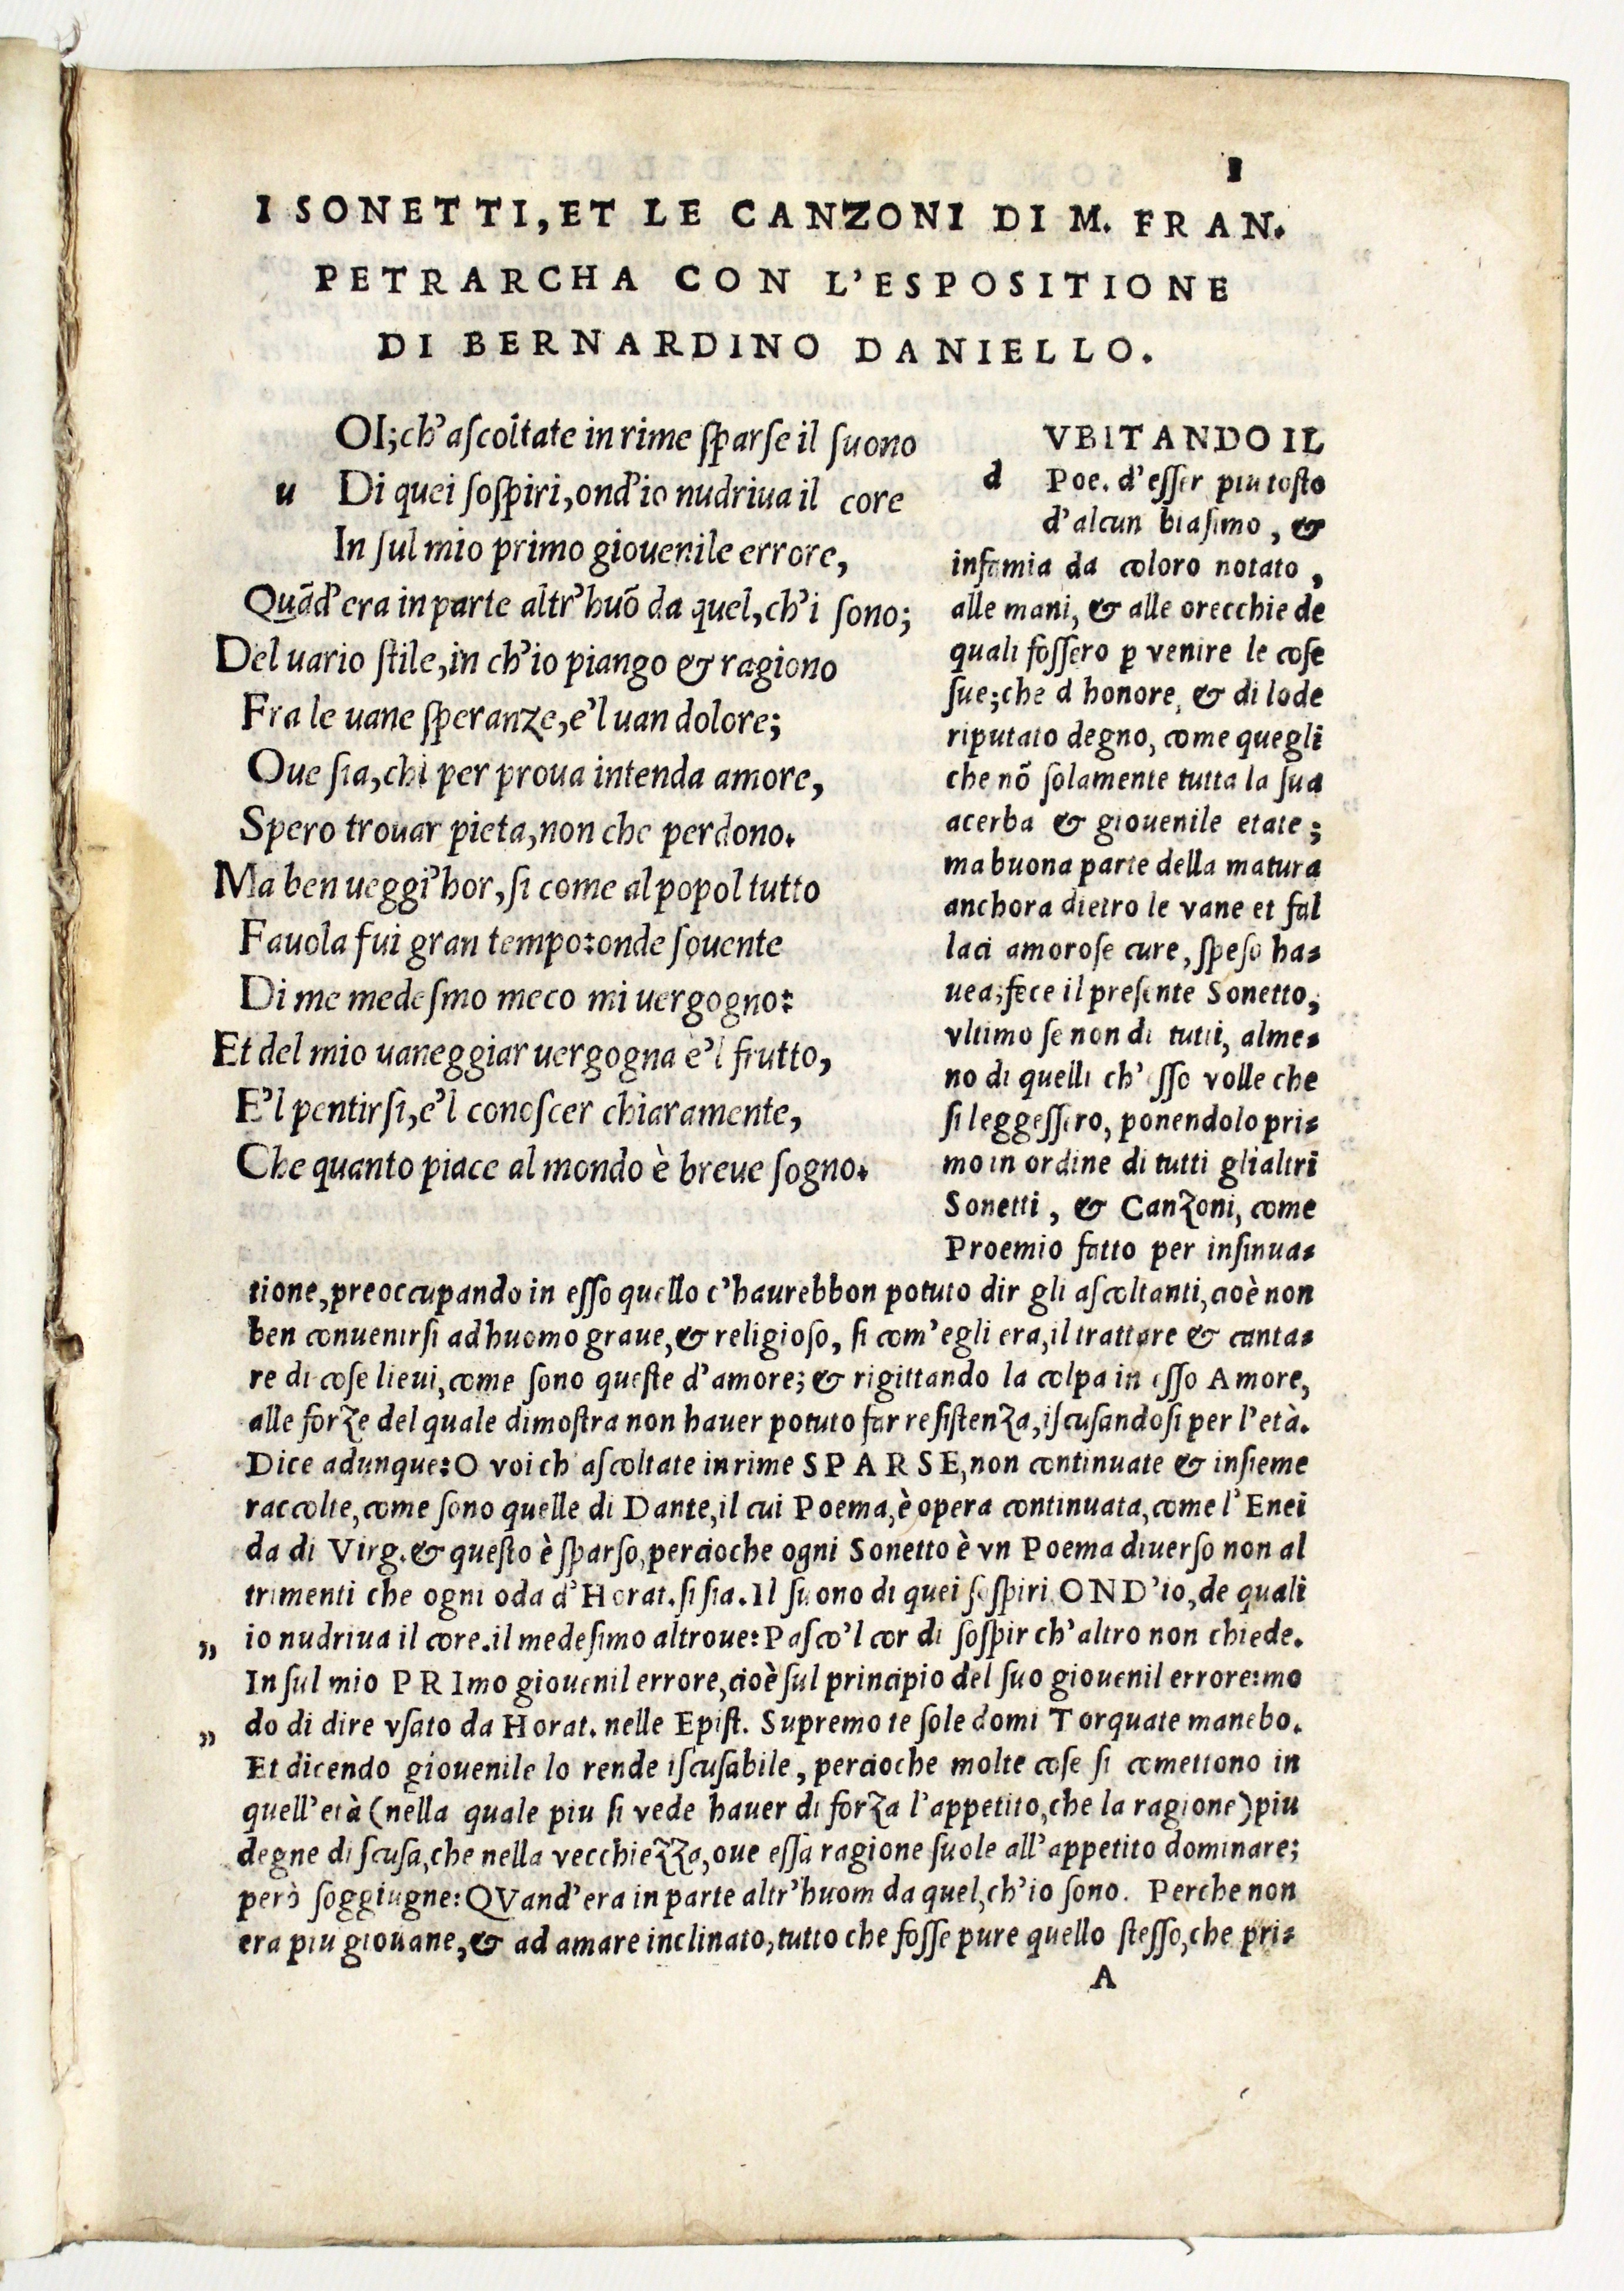 1
I SONETTI, ET LE CANZONI DI M. FRAN.
PETRARCHA CON L'ESPOSITIONE
DI BERNARDINO DANIELLO.
OI; ch'aſcoltate in rime ſparſe il ſuono
u Di quei ſoſpiri, ond'io nudriua il core
In ſul mio primo giouenile errore,
Quãd'era in parte altr'huõ da quel, ch'i ſono;
Del uario ſtile, in ch'io piango & ragiono
Fra le uane ſperanze, e'l uan dolore;
Oue ſia, chi per proua intenda amore,
Spero trouar pieta, non che perdono.
Ma ben ueggi'hor, ſi come al popol tutto
Fauola fui gran tempo: onde ſouente
Di me medeſmo meco mi uergogno:
Et del mio uaneggiar uergogna e'l frutto,
E'l pentirſi, e'l conoſcer chiaramente,
Che quanto piace al mondo è breue ſogno.
VBITANDO IL
d Poe. d'eſſer piu toſto
d'alcun biaſimo, &
infamia da coloro notato,
alle mani, & alle orecchie de
quali foſſero p venire le coſe
ſue; che d honore, & di lode
riputato degno, come quegli
che nõ ſolamente tutta la ſua
acerba & giouenile etate;
ma buona parte della matura
anchora dietro le vane et fal
laci amoroſe cure, ſpeſo ha-
uea; fece il preſente Sonetto,
vltimo ſe non di tutti, alme-
no di quelli ch' eſſo volle che
ſi leggeſſero, ponendolo pri-
mo in ordine di tutti glialtri
Sonetti, & Canzoni, come
Proemio fatto per inſinua-
tione, preoccupando in eſſo quello c'haurebbon potuto dir gli aſcoltanti, cioè non
ben conuenirſi ad huomo graue, & religioſo, ſi com'egli era, il trattare & canta-
re di coſe lieui, come ſono queſte d'amore; & rigittando la colpa in eſſo Amore,
alle forze del quale dimoſtra non hauer potuto far reſiſtenza, iſcuſandoſi per l'età.
Dice adunque: O voi ch'aſcoltate in rime SPARSE, non continuate & inſieme
raccolte, come ſono quelle di Dante, il cui Poema, è opera continuata, come l'Enei
da di Virg. & queſto è ſparſo, percioche ogni Sonetto è vn Poema diuerſo non al
trimenti che ogni oda d'Horat. ſi ſia. Il ſuono di quei ſoſpiri OND'io, de quali
„ io nudriua il core. il medeſimo altroue: Paſco'l cor di ſoſpir ch'altro non chiede.
In ſul mio PRImo giouenil errore, cioè ſul principio del ſuo giouenil errore: mo
„ do di dire vſato da Horat. nelle Epiſt. Supremo te ſole domi Torquate manebo.
Et dicendo giouenile lo rende iſcuſabile, percioche molte coſe ſi comettono in
quell'età (nella quale piu ſi vede hauer di forza l'appetito, che la ragione) piu
degne di ſcuſa, che nella vecchiezza, oue eſſa ragione ſuole all'appetito dominare;
però ſoggiugne: QVand'era in parte altr'huom da quel, ch'io ſono. Perche non
era piu giouane, & ad amare inclinato, tutto che foſſe pure quello ſteſſo, che pri-
A